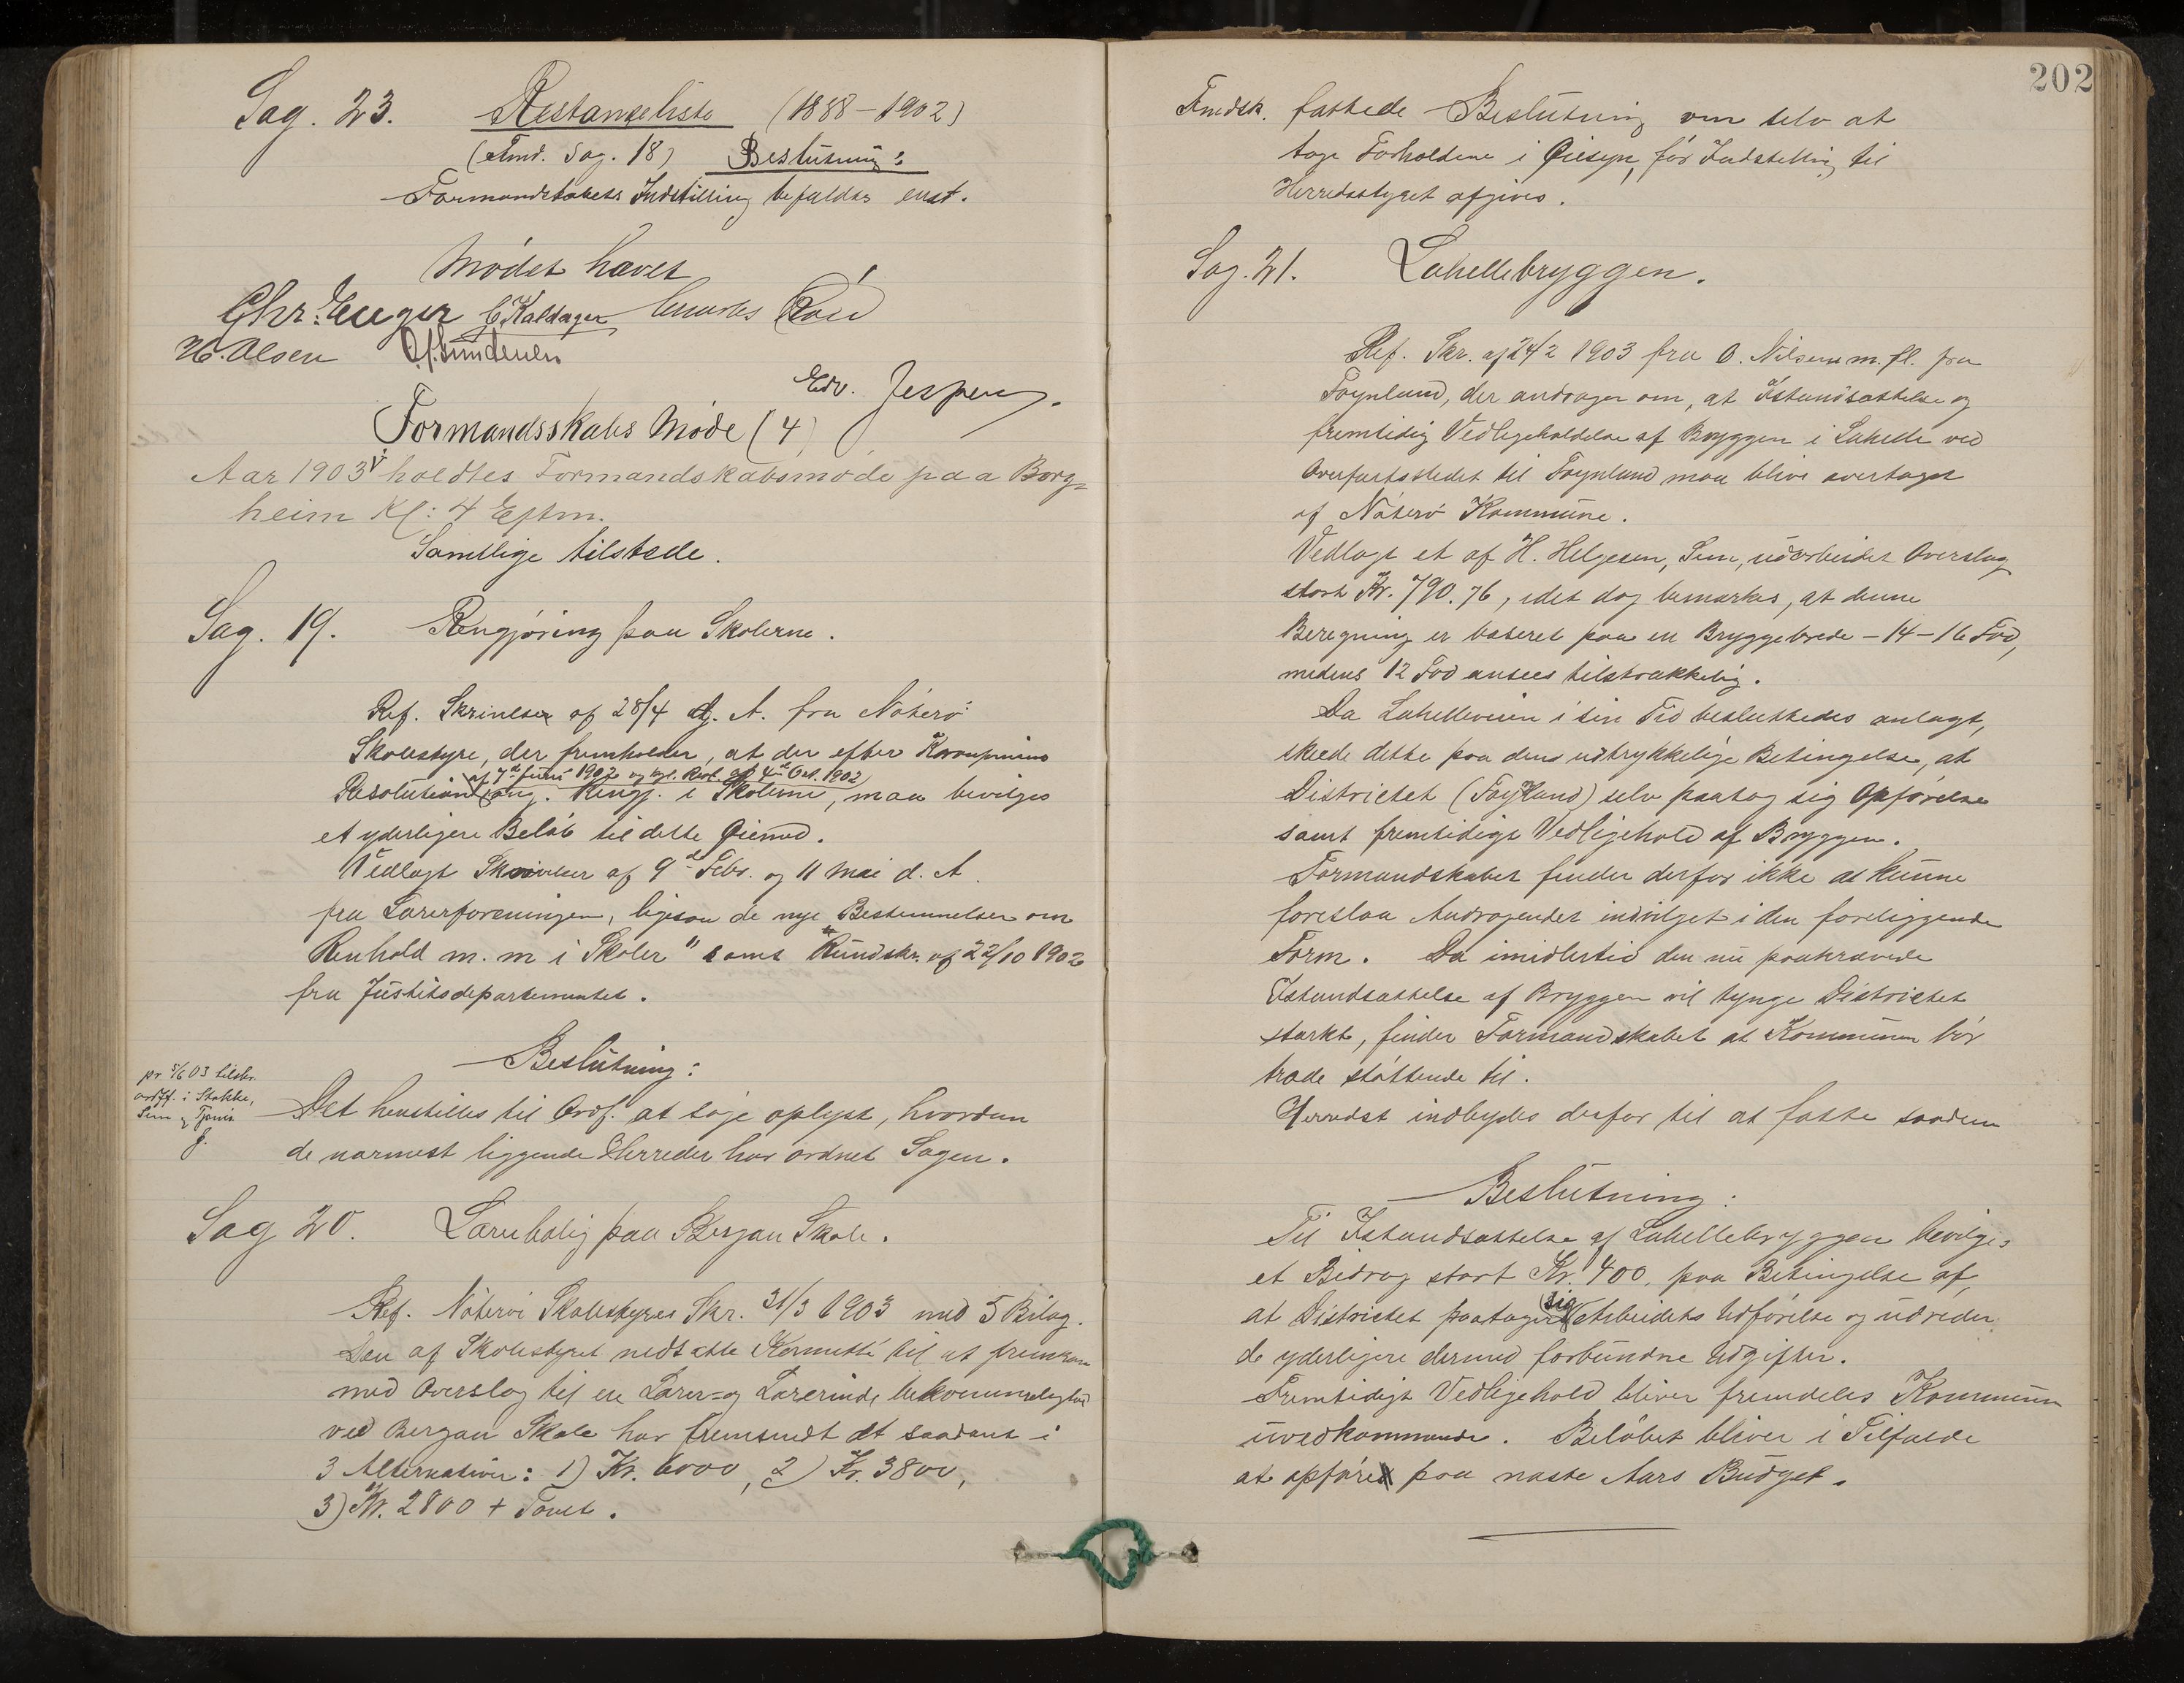 Sag. 23. Restanzeliste (1888-1902)
(Fmd. Sag. 18) Beslutning:
Formandskabets Indstilling befuldes enst.
Mødet hævet
Chr. Unger C Kaldager
H. Olsen
Edv. Jespersen.
Formandsskabs Møde (4)
Aar 1903 holdtes Formandskabsmøde paa Borg=
heim Kl: 4 Eftm.
Samtlige tilstede.
Sag. 19. Rengjøring paa Skolerne.
Ref. Skrivelse af 28/4 d. A. fra Nøterø
Skolestyre, der fremholder, at der efter Kronprinsens
af 7de Juni 1902 og kgl. Res. af 4de Oct. 1902
Resolution ang. Rengj. i Skolerne, maa bevilges
et yderligere Beløb til dette Øiemed.
Vedlagt Skrivelser af 9de Febr. og 11 Mai d. A.
fra Lærerforeningen, ligesom de nye Bestemmelser om
Renhold m. m i Skoler" samt Rundskr. af 22/10 1902
fra Justitsdepartementet.
Beslutning:
pr. 5/6 03 tilskr.
ordff. i Stokke,
Sem og Tjømø
J.
Det henstilles til Ordf. at søge oplyst, hvordan
de nærmest liggende Herreder har ordnet Sagen.
Sag 20. Lærerbolig paa Bergan Skole.
Ref. Nøterø Skolestyres Skr. 31/3 1903 med 5 Bilag.
Den af Skolestyret nedsatte Komitte til at fremkom
med Overslag til en Lærer=og Lærerinde bekvemmelighed
ved Bergan Skole har fremsendt et saadant i
3 Alternativer: 1) Kr. 6000, 2) Kr. 3800,
3) Kr. 2800 + Tomt.
202
Fmdsk. fattede Beslutning om selv at
tage Forholdene i Øiesyn, før Indstilling til
Herredsstyret afgives.
Sag. 21. Lahellebryggen.
Ref. Skr. af 24/2 1903 fra O. Nilsen m. fl. paa
Føynland, der andrager om, at Istandsættelse og
fremtidig Vedligeholdelse af Bryggen i Lahelle ved
Overfartsstedet til Føynland maa blive overtaget
af Nøterø Kommune.
Vedlagt et af H. Helgesen, Sem, udarbeidet Overslag
stort Kr. 790.76, idet dog bemærkes, at denne
Beregning er baseret paa en Bryggebrede - 14-16 Fod,
medens 12 Fod ansees tilstrækkelig.
Da Lahelleveien i sin Tid besluttedes anlagt,
skede dette paa den udtrykkelige Betingelse, at
Districtet (Føynland) selv paatog sig Opførelse
samt fremtidigt Vedligehold af Bryggen.
Formandskabet finder derfor ikke at kunne
foreslaa Andragendet indvilget i den foreliggende
Form. Da imidlertid den nu paakrævede
Istandsættelse af Bryggen vil tynge Districtet
stærkt, finder Formandskabet at Kommunen bør
træde støttende til.
Herredst indbydes derfor til at fatte saadan
Beslutning:
Til Istandsættelse af Lahellebryggen bevilges
et Bidrag stort Kr. 400, paa Betingelse af,
at Districtet paatager sig Arbeidets Udførelse og udreder
de yderligere dermed forbundne Udgifter.
Fremtidigt Vedligehold bliver fremdeles Kommunen
uvedkommende. Beløbet bliver i Tilfælde
at opføre paa næste Aars Budget.